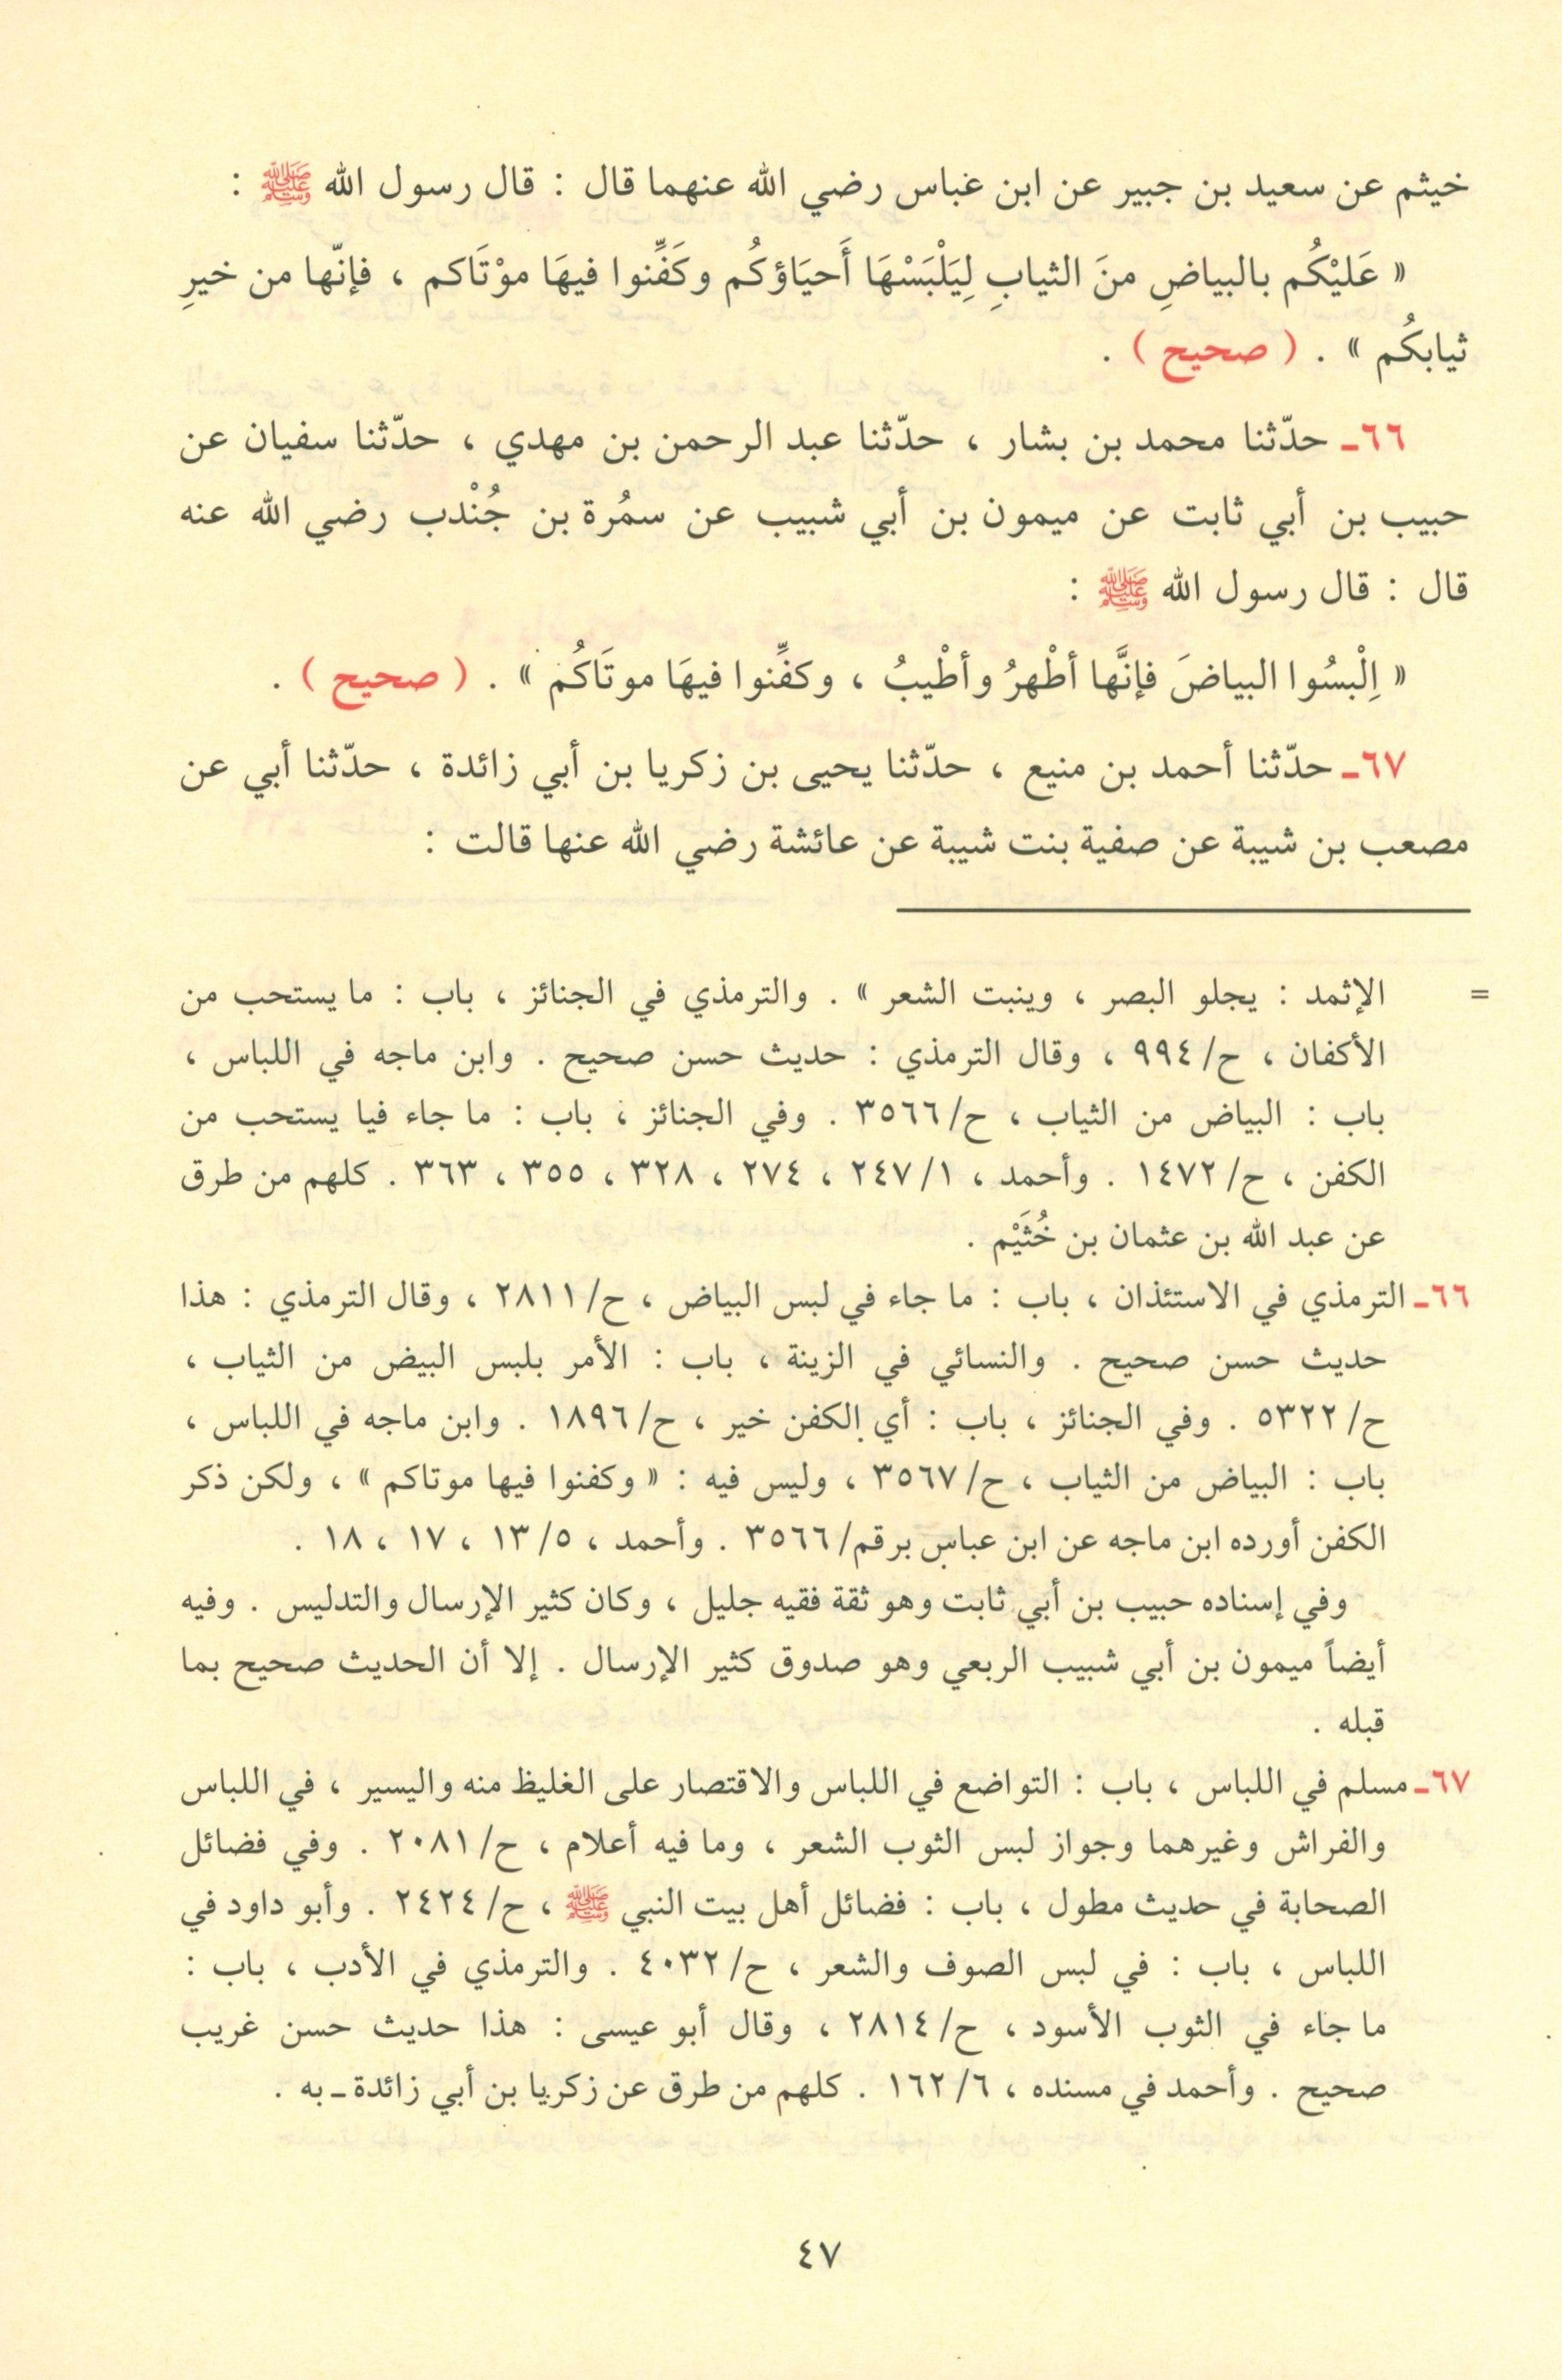 خيثم عن سعيد بن جبير عن ابن غباس رضي الله عنهما قال : قال رسول الله ﷺ :
« عَليْكُم بالبياضِ منَ الثيابِ لِيَلْبَسْهَا أَحيَاؤكُم وكَفِّنوا فيهَا موْتَاكم ، فإنّها من خيرِ
ثيابكُم » . ( صحيح ) .
٦٦ـ حدّثنا محمد بن بشار ، حدّثنا عبد الرحمن بن مهدي ، حدّثنا سفيان عن
حبيب بن أبي ثابت عن ميمون بن أبي شبيب عن سمُرة بن جُنْدب رضي الله عنه
قال : قال رسول الله ﷺ :
« اِلْبسُوا البياضَ فإنَّها أطْهرُ وأطْيبُ ، وكفِّنوا فيهَا موتَاكُم » . ( صحيح ) .
٦٧ـ حدّثنا أحمد بن منيع ، حدّثنا يحيى بن زكريا بن أبي زائدة ، حدّثنا أبي عن
مصعب بن شيبة عن صفية بنت شيبة عن عائشة رضي الله عنها قالت :
= الإثمد : يجلو البصر ، وينبت الشعر » . والترمذي في الجنائز ، باب : ما يستحب من
الأكفان ، ح/٩٩٤ ، وقال الترمذي : حديث حسن صحيح . وابن ماجه في اللباس ،
باب : البياض من الثياب ، ح/٣٥٦٦ . وفي الجنائز ، باب : ما جاء فيا يستحب من
الكفن ، ح/١٤٧٢ . وأحمد ، ٢٤٧/١ ، ٢٧٤ ، ٣٢٨ ، ٣٥٥ ، ٣٦٣ . كلهم من طرق
عن عبد الله بن عثمان بن خُثَيْم .
٦٦ـ الترمذي في الاستئذان ، باب : ما جاء في لبس البياض ، ح/٢٨١١ ، وقال الترمذي : هذا
حديث حسن صحيح . والنسائي في الزينة ، باب : الأمر بلبس البيض من الثياب ،
ح/٥٣٢٢ . وفي الجنائز ، باب : أي الكفن خير ، ح/١٨٩٦ . وابن ماجه في اللباس ،
باب : البياض من الثياب ، ح/٣٥٦٧ ، وليس فيه : « وكفنوا فيها موتاكم » ، ولكن ذكر
الكفن أورده ابن ماجه عن ابن عباس برقم/٣٥٦٦ . وأحمد ، ١٣/٥ ، ١٧ ، ١٨ .
وفي إسناده حبيب بن أبي ثابت وهو ثقة فقيه جليل ، وكان كثير الإرسال والتدليس . وفيه
أيضاً ميمون بن أبي شبيب الربعي وهو صدوق كثير الإرسال . إلا أن الحديث صحيح بما
قبله .
٦٧ـ مسلم في اللباس ، باب : التواضع في اللباس والاقتصار على الغليظ منه واليسير ، في اللباس
والفراش وغيرهما وجواز لبس الثوب الشعر ، وما فيه أعلام ، ح/٢٠٨١ . وفي فضائل
الصحابة في حديث مطول ، باب : فضائل أهل بيت النبي ﷺ ، ح/٢٤٢٤ . وأبو داود في
اللباس ، باب : في لبس الصوف والشعر ، ح/٤٠٣٢ . والترمذي في الأدب ، باب :
ما جاء في الثوب الأسود ، ح/٢٨١٤ ، وقال أبو عيسى : هذا حديث حسن غريب
صحيح . وأحمد في مسنده ، ١٦٢/٦ . كلهم من طرق عن زكريا بن أبي زائدة ـ به .
٤٧